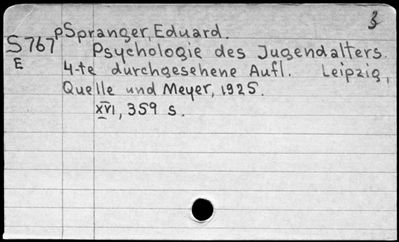 3
pSpranger, Eduard.
S767 Psychologie des Jugendalters.
E 4-te durchgesehene Aufl. Leipzig,
Quelle und Meyer, 1925.
XVI, 359 s.